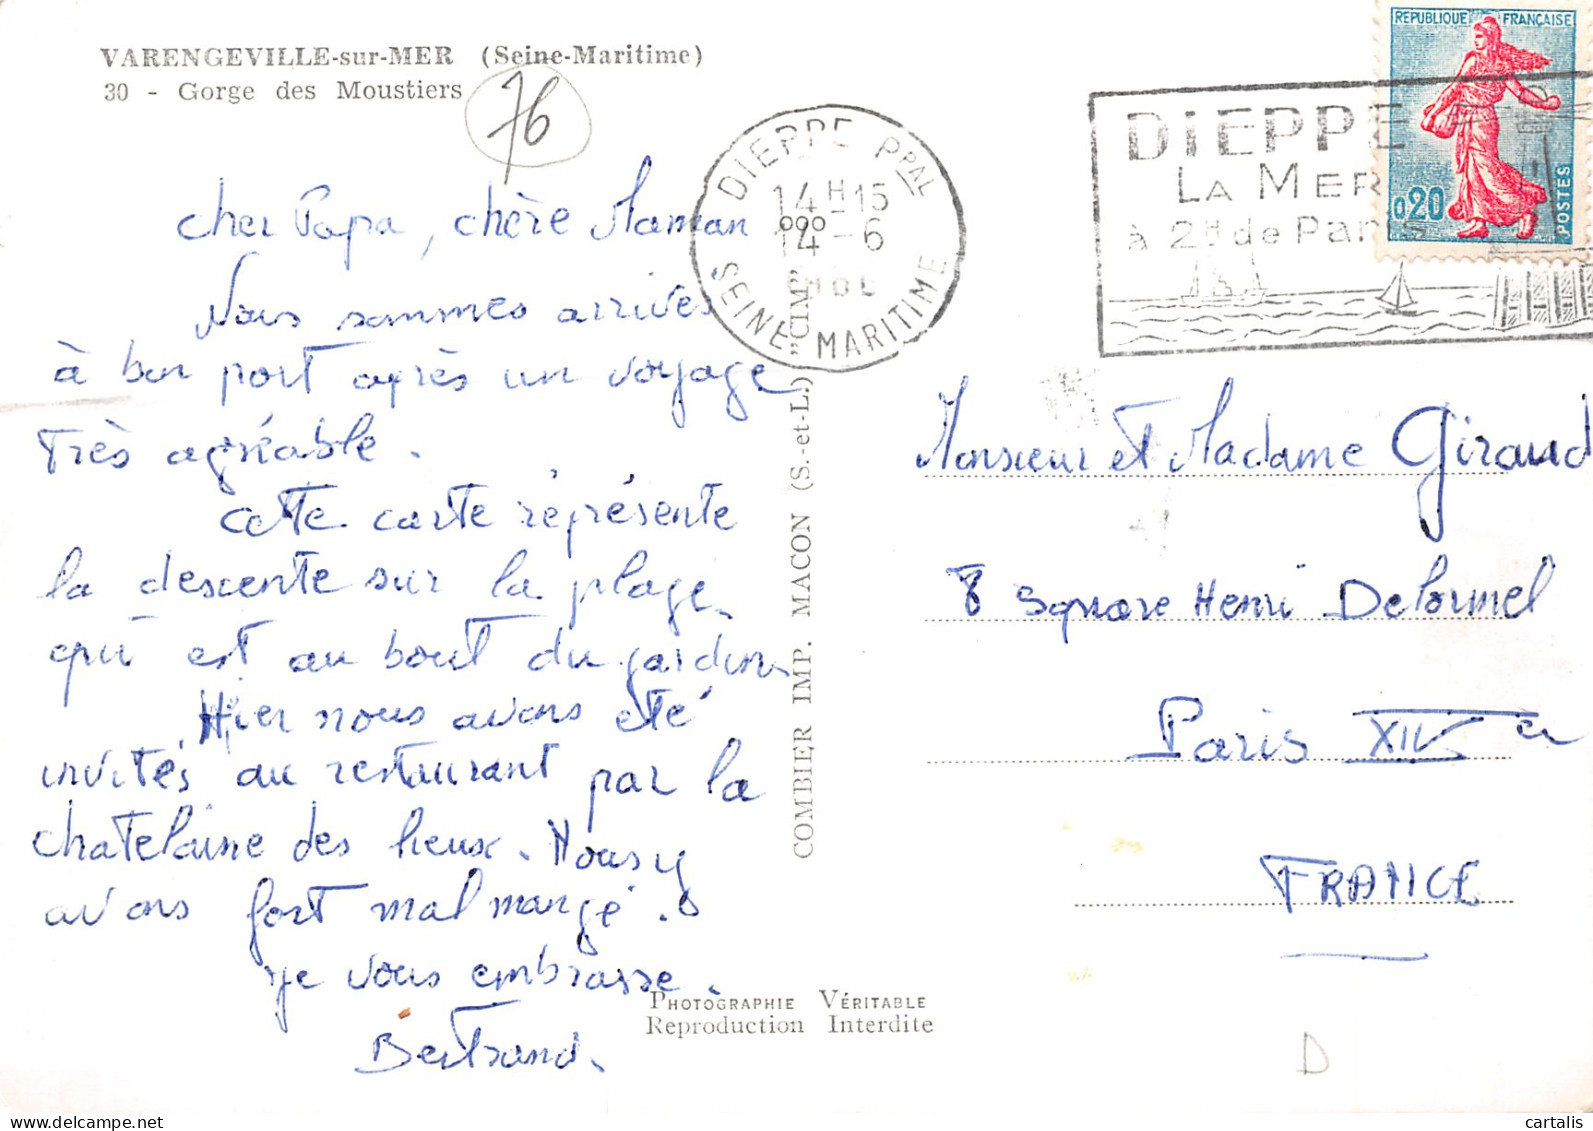 VARENGEVILLE-sur-MER (Seine-Maritime)
30 - Gorge des Moustiers
76
cher Papa, chère Maman
Nous sommes arrivés
à bon port après un voyage
très agréable.
Cette carte représente
la descente sur la plage
qui est au bout du jardin.
Hier nous avons été
invités au restaurant par la
chatelaine des lieux. Nous y
avons fort mal mangé.
je vous embrasse.
Bertrand.
PHOTOGRAPHIE VÉRITABLE
Reproduction Interdite
COMBIER IMP. MACON (S.-et-L.) "CIM"
DIEPPE PPAL
14H15
14-6
SEINE MARITIME
DIEPPE
LA MER
à 2H de Paris
REPUBLIQUE FRANÇAISE
0,20
POSTES
Monsieur et Madame Giraud
8 Square Henri Delormel
Paris XIV
FRANCE
D
cartalis